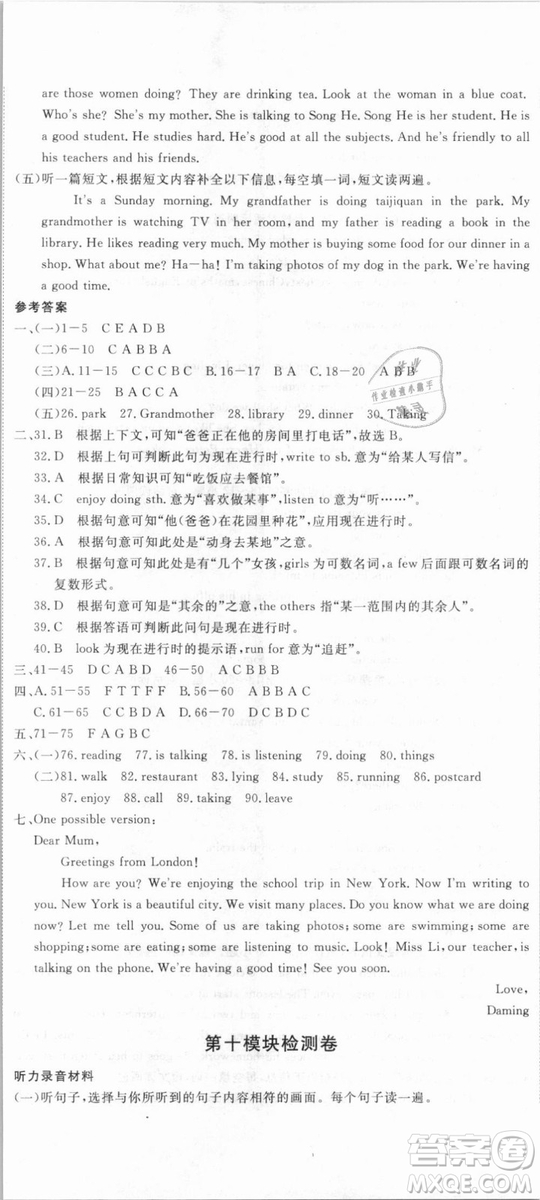 are those women doing? They are drinking tea. Look at the woman in a blue coat.
Who's she? She's my mother. She is talking to Song He. Song He is her student. He is
a good student. He studies hard. He's good at all the subjects. And he's friendly to all
his teachers and his friends.
(五)听一篇短文,根据短文内容补全以下信息,每空填一词,短文读两遍。
It's a Sunday morning. My grandfather is doing taijiquan in the park. My
grandmother is watching TV in her room, and my father is reading a book in the
library. He likes reading very much. My mother is buying some food for our dinner in a
shop. What about me? Ha—ha! I'm taking photos of my dog in the park. We're having
a good time.
参考答案
一、(一)1—5 C E A D B
(二)6—10 C A B B A
(三)A. 11—14 A C B B B. 15—17 B C A C. 18—20 A B B
(四)21—25 B A C C A
(五)26. park 27. Grandmother 28. library 29. dinner 30. Taking
二、31. B 根据上下文,可知“爸爸正在他的房间里打电话”,故选B。
32. A 根据上句可判断此句为现在进行时,write to sb. 意为“给某人写信”。
33. A 根据日常知识可知“吃饭应去餐馆”。
34. C enjoy doing sth. 意为“喜欢做某事”,listen to 意为“听……”。
35. D 根据句意可知“他(爸爸)在花园里种花”,应用现在进行时。
36. D 根据句意可知此处是“动身去某地”之意。
37. B 根据句意可知此处应是有“几个”女孩,girls 为可数名词,a few后面跟可数名词的
复数形式。
38. D 根据句意可知是“其余的”之意,the others 指“某一范围内的其他人”。
39. C 根据答语可判断此问句是现在进行时。
40. B look 为现在进行时的提示语,run for 意为“追赶”。
三、41—45 D C A B D 46—50 A C B B C
四、A. 51—55 F T T F F B. 56—60 A B C B D
C. 61—65 C C B D A D. 66—70 D B A C B
五、71—75 F A G B C
六、(一)76. reading 77. is talking 78. is listening 79. doing 80. things
(二)81. walk 82. restaurant 83. lying 84. study 85. running 86. postcard
87. enjoy 88. call 89. taking 90. leave
七、One possible version:
Dear Mum,
Greetings from London!
How are you? We're enjoying the school trip in New York. Now I'm writing to
you. New York is a beautiful city. We visit many places. Do you want know what we are
doing now? Let me tell you. Some of us are taking photos; some are swimming; some are
shopping; some are eating; some are listening to music. Look! Miss Li, our teacher, is
talking on the phone. We're having a good time here! See you soon.
Love,
Daming
第十模块检测卷
听力录音材料
(一)听句子,选择与你所听到的句子内容相符的画面。每个句子读一遍。
作业检查小助手
答案圈
MXQE.COM